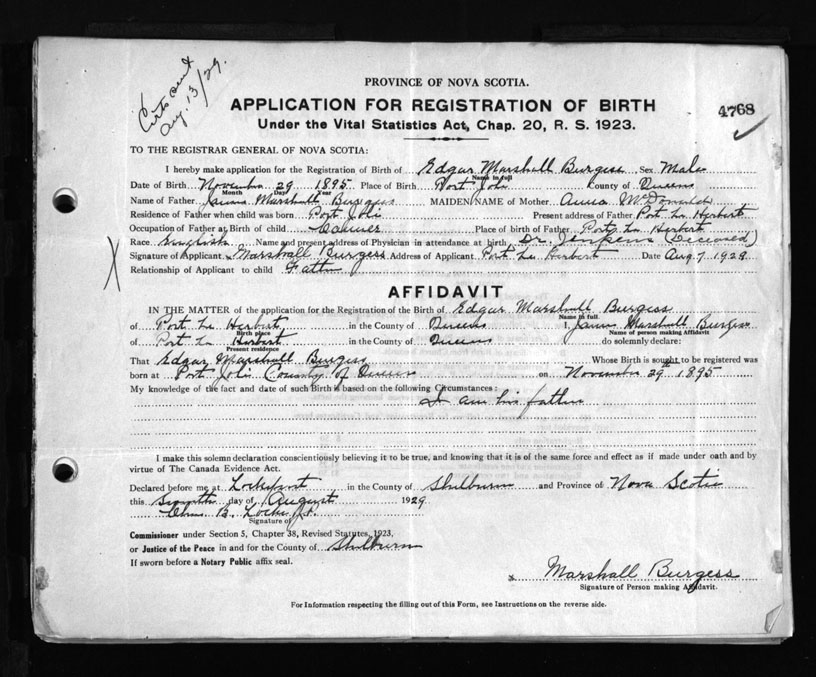 Certs sent
Aug. 13/29.
PROVINCE OF NOVA SCOTIA.
APPLICATION FOR REGISTRATION OF BIRTH
4768
Under the Vital Statistics Act, Chap. 20, R. S. 1923.
TO THE REGISTRAR GENERAL OF NOVA SCOTIA:
I hereby make application for the Registration of Birth of Edgar Marshall Burgess Sex Male
Name in full
Date of Birth November 29 1895 Place of Birth Port Joli County of Queens
Month Day Year
Name of Father James Marshall Burgess MAIDEN NAME of Mother Anna McDonald
Residence of Father when child was born Port Joli Present address of Father Port Le Herbert
Occupation of Father at Birth of child Place of birth of Father Port Le Herbert
Race English Name and present address of Physician in attendance at birth Dr. (Deceased)
Signature of Applicant Marshall Burgess Address of Applicant Port Le Herbert Date Aug 7 1929
Relationship of Applicant to child Father
AFFIDAVIT
IN THE MATTER of the application for the Registration of the Birth of Edgar Marshall Burgess
Name in full.
of Port Le Herbert in the County of Queens I, James Marshall Burgess
Birth place Name of person making Affidavit
of Port Le Herbert in the County of Queens do solemnly declare:
Present residence
That Edgar Marshall Burgess Whose Birth is sought to be registered was
born at Port Joli County of Queens on November 29th 1895
My knowledge of the fact and date of such Birth is based on the following Circumstances:
I am his father
I make this solemn declaration conscientiously believing it to be true, and knowing that it is of the same force and effect as if made under oath and by
virtue of The Canada Evidence Act.
Declared before me at Lockeport in the County of Shelburne and Province of Nova Scotia
this Seventh day of August 1929
B. Locke J.P.
Signature of
Commissioner under Section 5, Chapter 38, Revised Statutes, 1923,
or Justice of the Peace in and for the County of Shelburne
If sworn before a Notary Public affix seal.
x Marshall Burgess
Signature of Person making Affidavit.
For Information respecting the filling out of this Form, see Instructions on the reverse side.